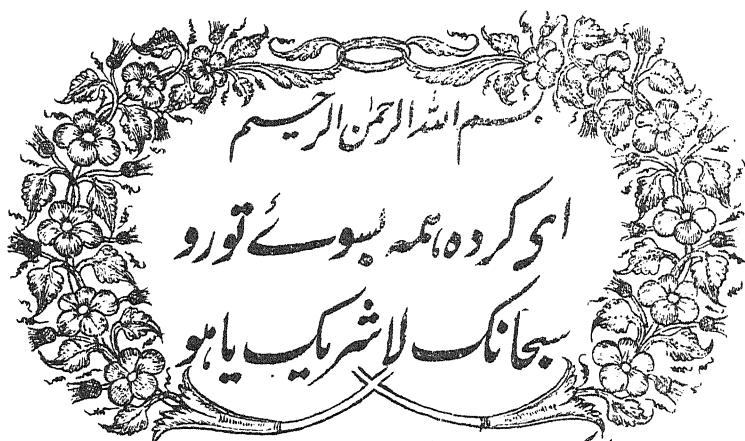 بسم الله الرحمٰن الرحیم
ای کرده همه بسوئے تو رو
سبحانک لا شریک یا هو